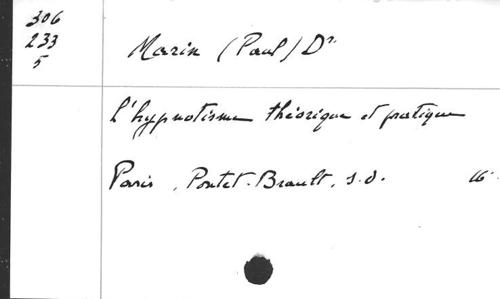 306
233
5
Marin (Paul) Dr.
L'hypnotisme théorique et pratique
Paris, Pontet-Brault, s.d. 16°